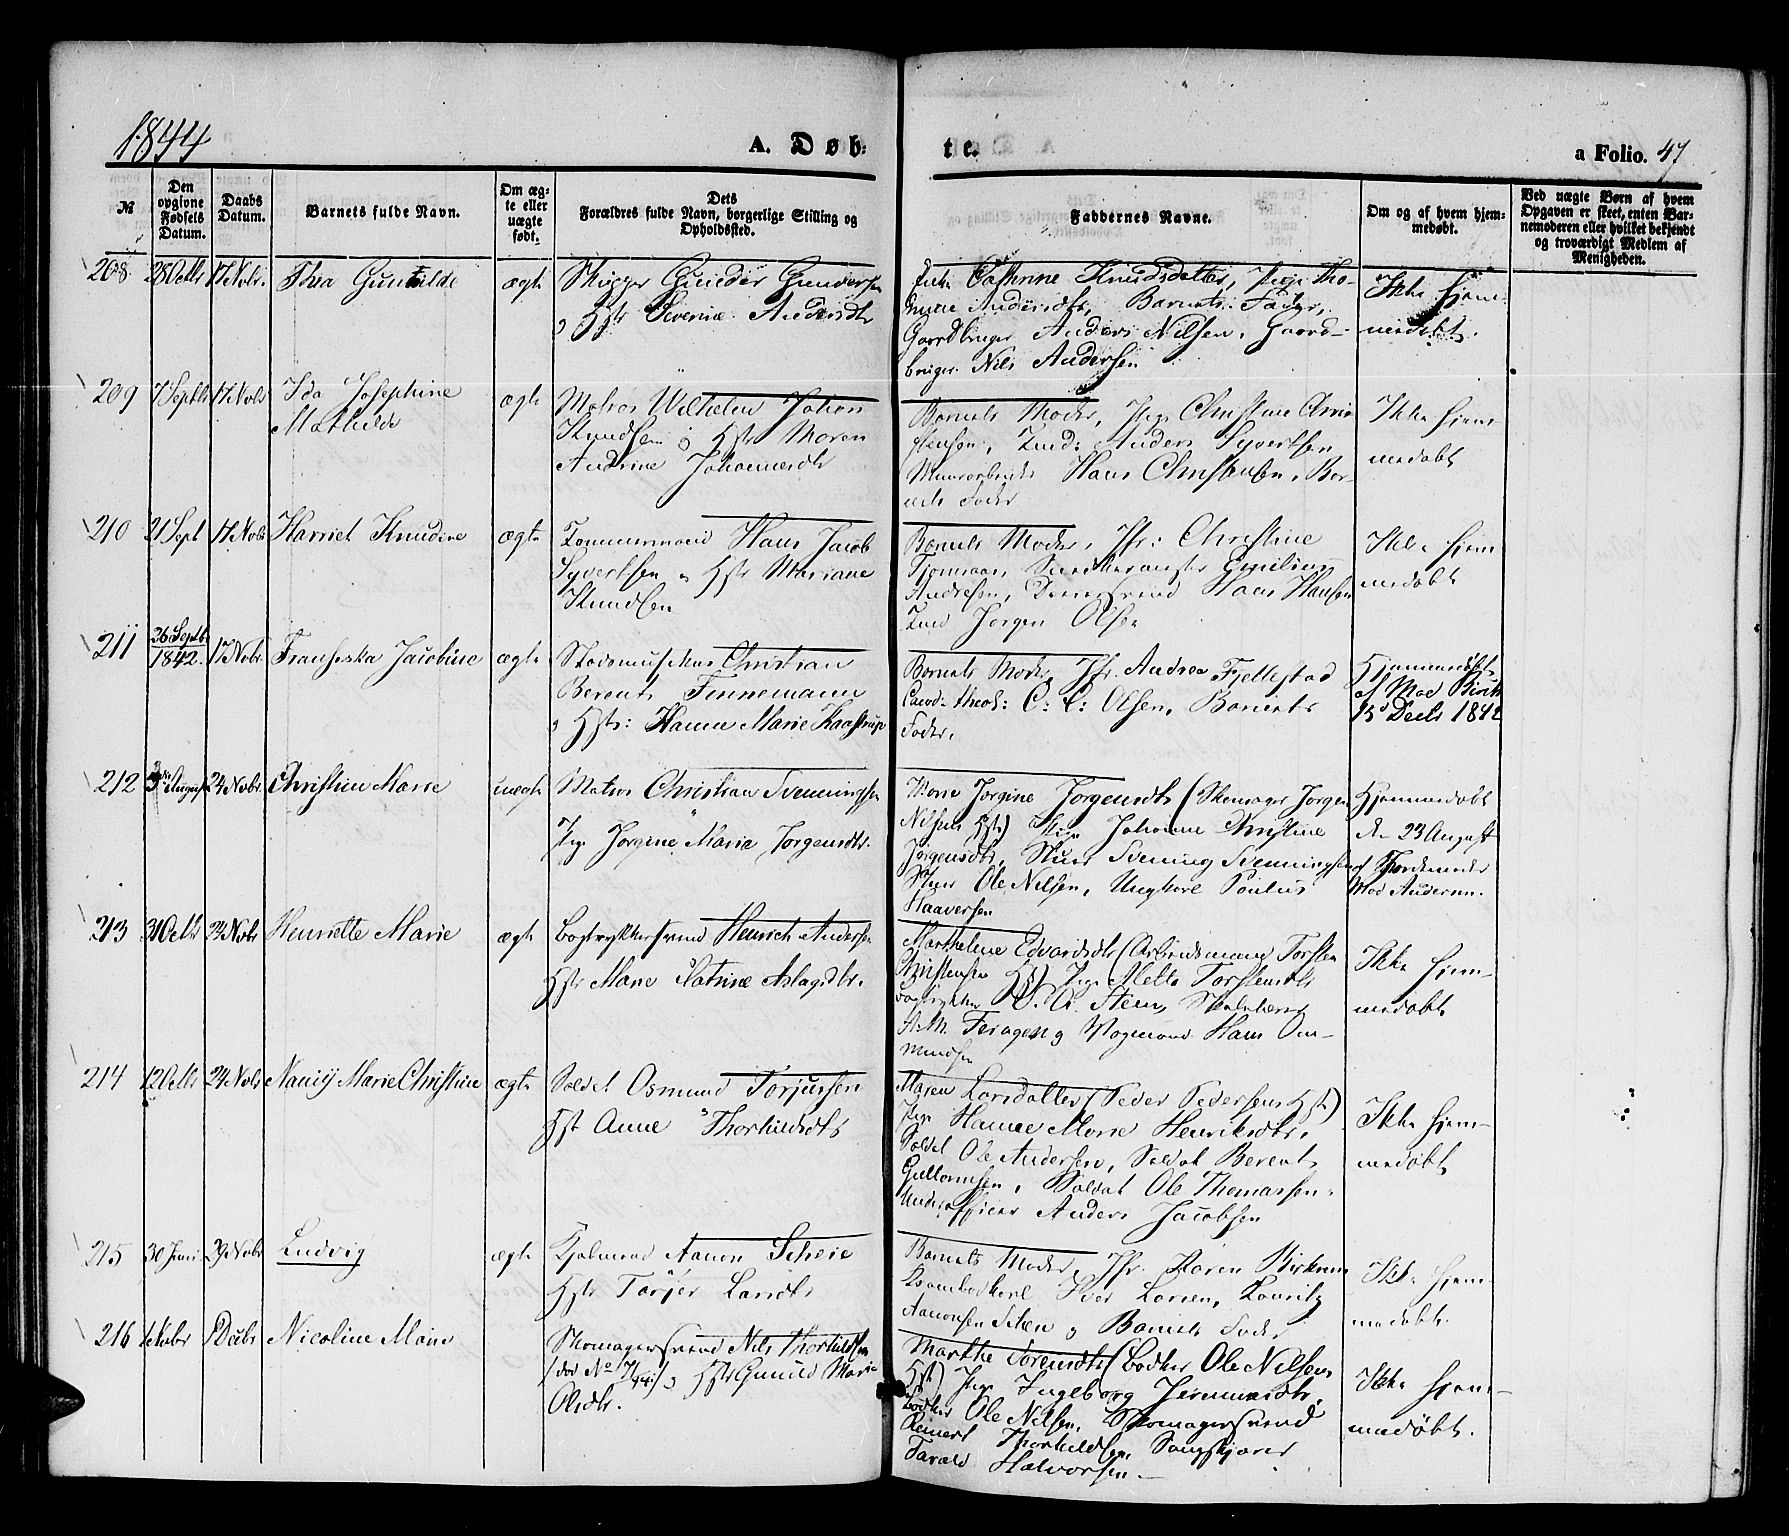 1844
A. Døb-
te.
a Folio. 47
№
Den opgivne Fødsels Datum.
Daabs Datum.
Barnets fulde Navn.
Om ægte eller uægte født.
Dets
Forældres fulde Navn, borgerlige Stilling og
Opholdssted.
Faddernes Navne.
Om og af hvem hjem-
medøbt.
Ved uægte Børn af hvem
Opgaven er skeet, enten Bar-
nemoderen eller hvilket bekjendt
og troværdigt Medlem af
Menigheden.
208 28 Octb 17 Nobr. Thea Gunhilde ægte
Skipper Gunder Gundersen
og Hstr Severine Andersdtr
Enke Cathrine Knudsdatter, Pige Tho-
mine Andersdtr, Barnets Fader,
Gaardbruger Anders Nilsen, Gaard-
bruger Nils Andersen
Ikke hjem-
medøbt.
209 7 Septb 17 Nobr Ida Josephine
Mathilde
ægte
Matros Wilhelm Johan
Knudsen og Hstr Maren
Andrine Johannesdtr
Barnets Moder, Pige Christine Chri-
stensen, Anders Syvertsen
Hans Christensen, Bar-
nets Fader
Ikke hjem-
medøbt
210 21 Sept 17 Nobr Harriet Knudine ægte
Tømmermand Hans Jacob
Syvertsen og Hstr Mariane
Knudsen
Barnets Moder, Jfr: Christine
Emilius
Andresen, Hans Hansen
Jørgen Olsen
Ikke hjem-
medøbt
211 26 Septb
1842. 17 Nobr Fransiska Jacobine ægte
Christian
Berent Tinnemann
og Hstr: Hanna Marie Kaastrup
Barnets Moder, Jfr. Andrea Fjellestad
Cand. theol: C: C: Olsen, Barnets
Fader.
Hjemmedøbt
af Mad Birk
15 Decb 1842
212 3 August 24 Nobr Christine Marie uægte
Matros Christian Svenningsen
Pige Jørgine Marie Jørgensdtr.
Kone Jørgine Jørgensdtr (Skomager Jørgen
Nilsens Hstr) Pige Johanne Christine
Jørgensdtr, Svening Svenningsen
Ole Nilsen, Ungkarl Poulus
Haaversen
Hjemmedøbt
d. 23 August
af Jordemoder
Mad Andersen.
213 31 Octb 24 Nobr Henriette Marie ægte
Bogtrykkersvend Henrich Andersen
Hstr Marie Katrine Aslagsdtr.
Marthelene Edvardsdtr (Arbeidsmand Torsten
Christensen Hst) Pige Mette Torstensdtr
Bogtrykker O. C. Steen,
A. M. Feragen og Vognmand Hans Om-
mundsen
Ikke hjem-
medøbt
214 12 Octb 24 Nobr Nancy Marie Christine ægte
Soldat Osmund Torjussen
Hst Anne Thorkildsdtr
Maren Larsdatter (Peder Pedersens Hst)
Pige Hanne Marie Henriksdtr,
Soldat Ole Andersen, Soldat Berent
Gullormsen, Soldat Ole Thomassen,
Underofficer Anders Jacobsen
Ikke hjem-
medøbt
215 30 Juni 29 Nobr Ludvig ægte
Aanon Scheie
Hstr Torjer Larsdtr
Barnets Moder, Jfr. Karen Birkrem
Iver Larsen, Lauritz
Aanonsen Scheie og Barnets Fader
Ikke hjem-
medøbt.
216 1 Nobr 1 Decbr Nicoline Marie
Skomagersvend Nils Thorkildsen
(død No 7/44) og Hstr Gunild Marie
Olsdtr.
Marthe Sørensdtr (Bødker Ole Nilsens
Hst) Pige Ingeborg Jeremiasdtr,
Bødker Ole Nilsen, Skomagersvend
Reinert Thorkildsen,
Tarald Halvorsen.
Ikke hjem-
medøbt.